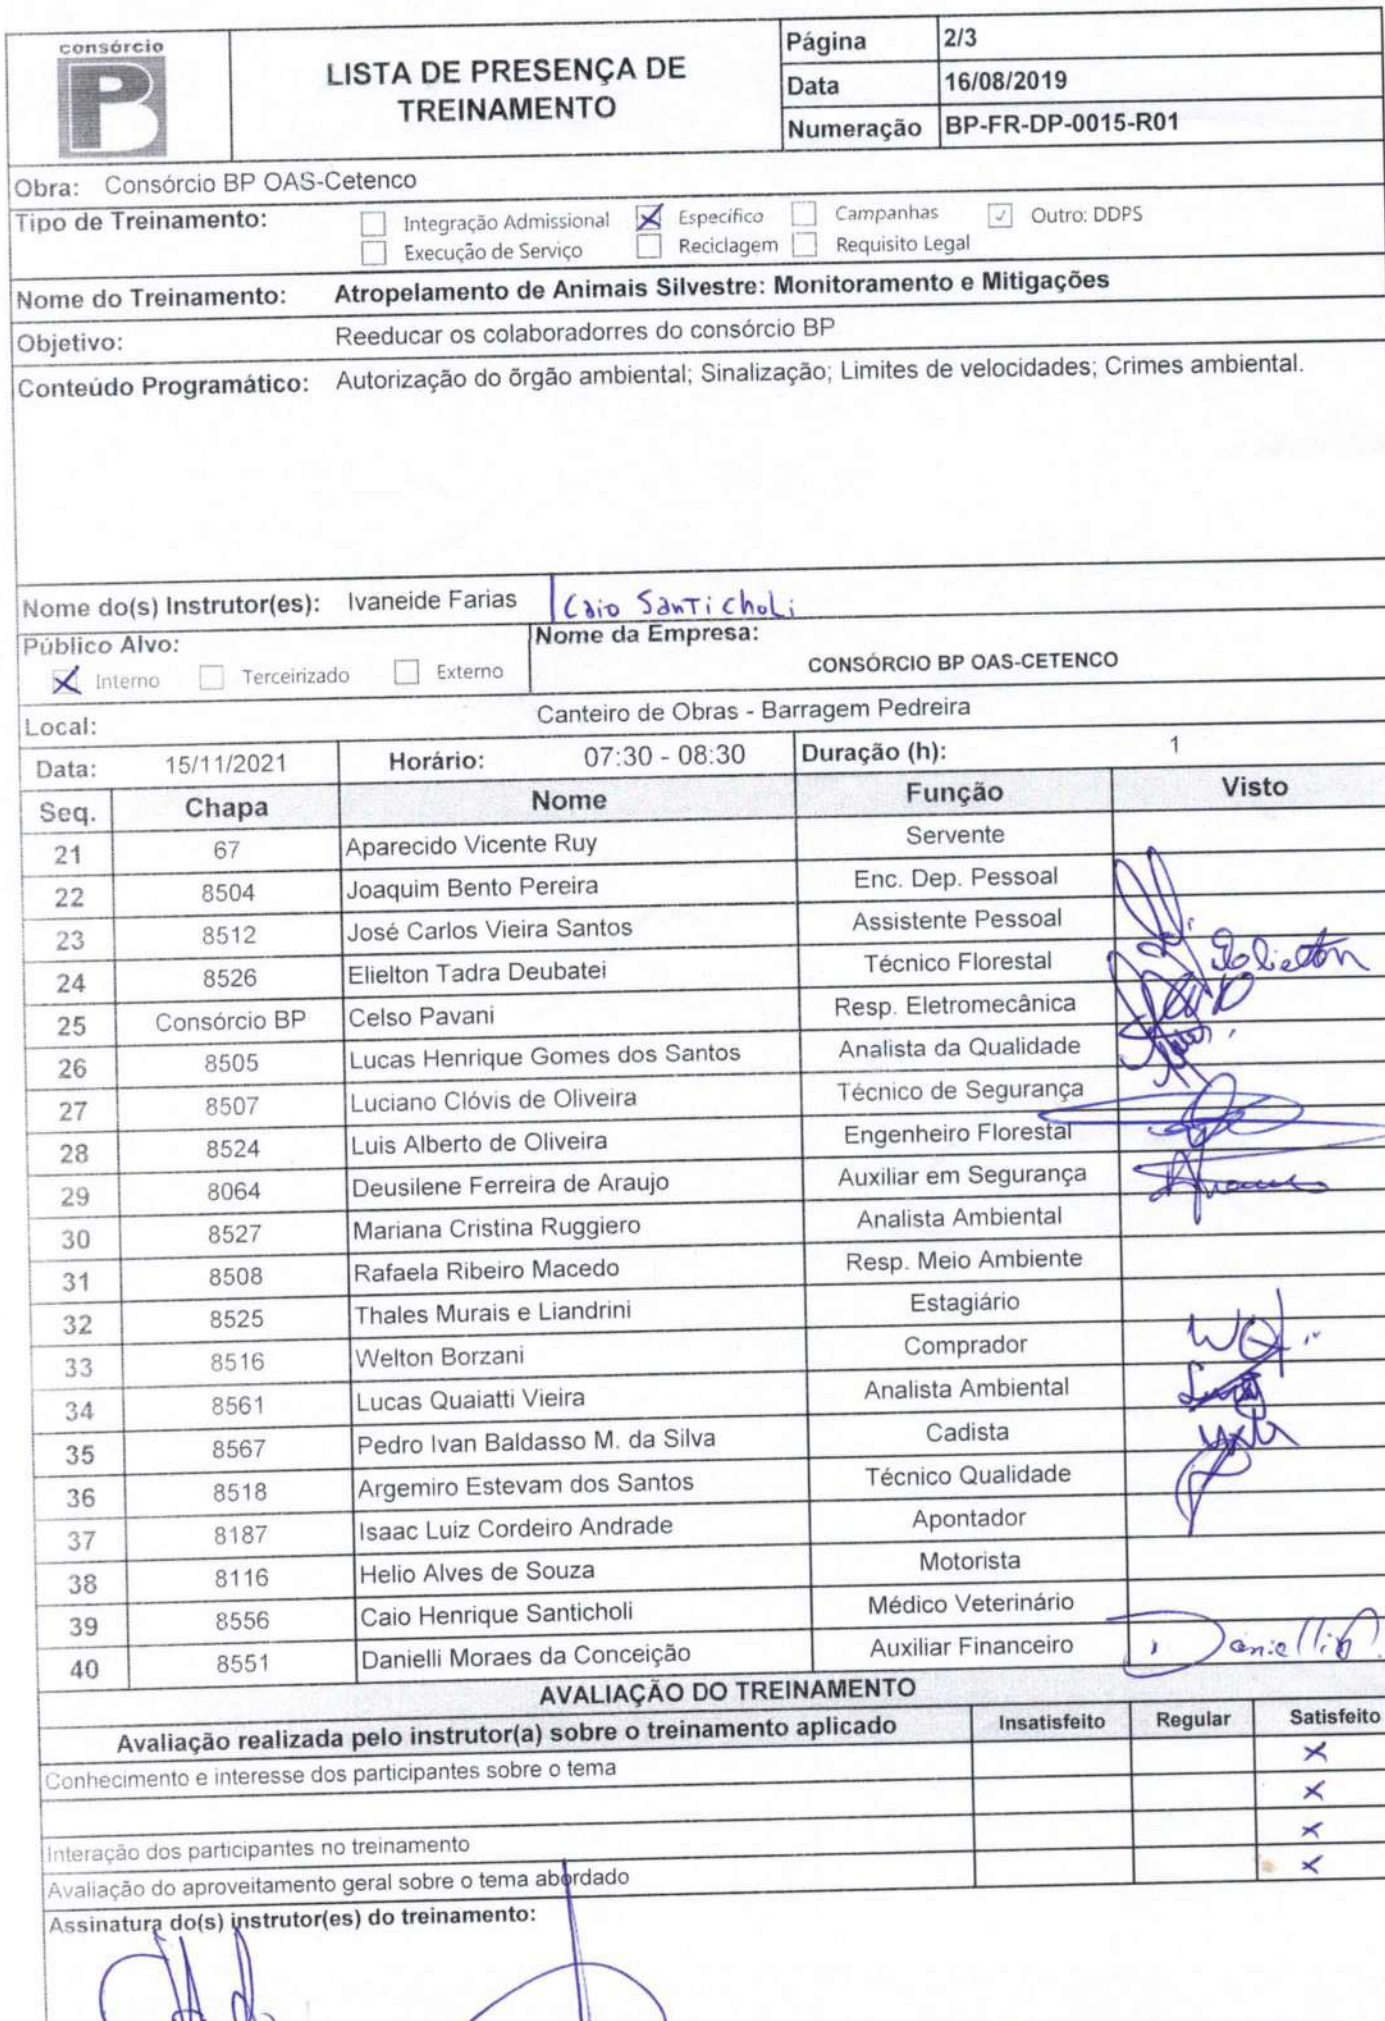 consórcio
PB
LISTA DE PRESENÇA DE
TREINAMENTO
Página 2/3
Data 16/08/2019
Numeração BP-FR-DP-0015-R01
Obra: Consórcio BP OAS-Cetenco
Tipo de Treinamento: Integração Admissional Específico Campanhas Outro: DDPS
Execução de Serviço Reciclagem Requisito Legal
Nome do Treinamento: Atropelamento de Animais Silvestre: Monitoramento e Mitigações
Objetivo: Reeducar os colaboradorres do consórcio BP
Conteúdo Programático: Autorização do õrgão ambiental; Sinalização; Limites de velocidades; Crimes ambiental.
Nome do(s) Instrutor(es): Ivaneide Farias Caio Santicholi
Público Alvo: Nome da Empresa:
Interno Terceirizado Externo CONSÓRCIO BP OAS-CETENCO
Local: Canteiro de Obras - Barragem Pedreira
Data: 15/11/2021 Horário: 07:30 - 08:30 Duração (h): 1
Seq. Chapa Nome Função Visto
21 67 Aparecido Vicente Ruy Servente
22 8504 Joaquim Bento Pereira Enc. Dep. Pessoal
23 8512 José Carlos Vieira Santos Assistente Pessoal
24 8526 Elielton Tadra Deubatei Técnico Florestal
25 Consórcio BP Celso Pavani Resp. Eletromecânica
26 8505 Lucas Henrique Gomes dos Santos Analista da Qualidade
27 8507 Luciano Clóvis de Oliveira Técnico de Segurança
28 8524 Luis Alberto de Oliveira Engenheiro Florestal
29 8064 Deusilene Ferreira de Araujo Auxiliar em Segurança
30 8527 Mariana Cristina Ruggiero Analista Ambiental
31 8508 Rafaela Ribeiro Macedo Resp. Meio Ambiente
32 8525 Thales Murais e Liandrini Estagiário
33 8516 Welton Borzani Comprador
34 8561 Lucas Quaiatti Vieira Analista Ambiental
35 8567 Pedro Ivan Baldasso M. da Silva Cadista
36 8518 Argemiro Estevam dos Santos Técnico Qualidade
37 8187 Isaac Luiz Cordeiro Andrade Apontador
38 8116 Helio Alves de Souza Motorista
39 8556 Caio Henrique Santicholi Médico Veterinário
40 8551 Danielli Moraes da Conceição Auxiliar Financeiro
AVALIAÇÃO DO TREINAMENTO
Avaliação realizada pelo instrutor(a) sobre o treinamento aplicado Insatisfeito Regular Satisfeito
Conhecimento e interesse dos participantes sobre o tema X
X
Interação dos participantes no treinamento X
Avaliação do aproveitamento geral sobre o tema abordado X
Assinatura do(s) instrutor(es) do treinamento: